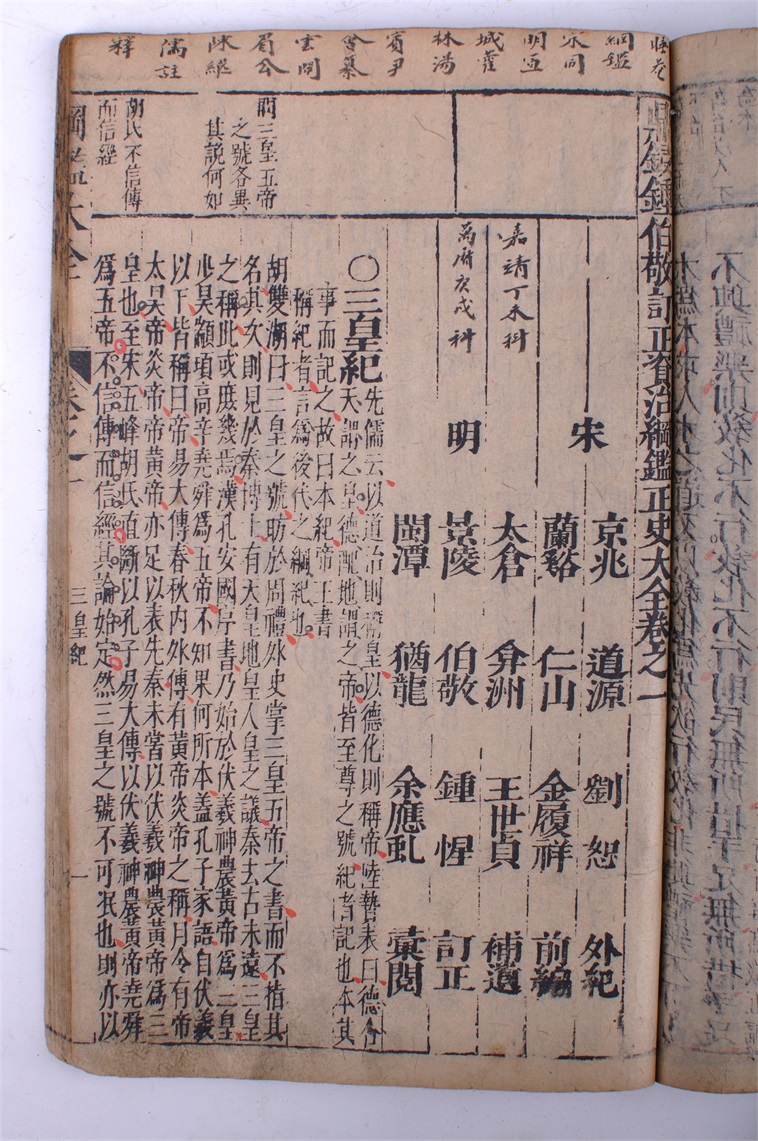 綱鑑
宋同
明宣
城霍
林湯
賓尹
會纂
雲間
眉公
陳繼
儒註
釋
鼎鋟鍾伯敬訂正資治綱鑑正史大全卷之一
宋
京兆 道源 劉恕 外紀
蘭谿 仁山 金履祥 前編
嘉靖丁未科
明
太倉 弇洲 王世貞 補遺
萬曆庚戌科
景陵 伯敬 鍾惺 訂正
閩潭 猶龍 余應虬 彙閱
〇三皇紀
先儒云以道治則稱皇以德化則稱帝陸贄表曰德合
天謂之皇德配地謂之帝皆至尊之號紀者記也本其
事而記之故曰本紀帝王書
稱紀者言爲後代之綱紀也
問三皇五帝
之號各異
其說何如
胡雙湖曰三皇之號昉於周禮外史掌三皇五帝之書而不指其
名其次則見於秦博士有天皇地皇人皇之議秦去古未遠三皇
之稱此或庶幾焉漢孔安國序書乃始於伏羲神農黃帝爲三皇
少昊顓頊高辛堯舜爲五帝不知果何所本盖孔子家語自伏羲
以下皆稱曰帝易大傳春秋內外傳有黃帝炎帝之稱月令有帝
太昊帝炎帝帝黃帝亦足以表先秦未嘗以伏羲神農黃帝爲三
胡氏不信傳
而信經
皇也至宋五峰胡氏直斷以孔子易大傳以伏羲神農黃帝堯舜
爲五帝不信傳而信經其論始定然三皇之號不可泯也則亦以
綱鑑大全
卷之一
三皇紀
一